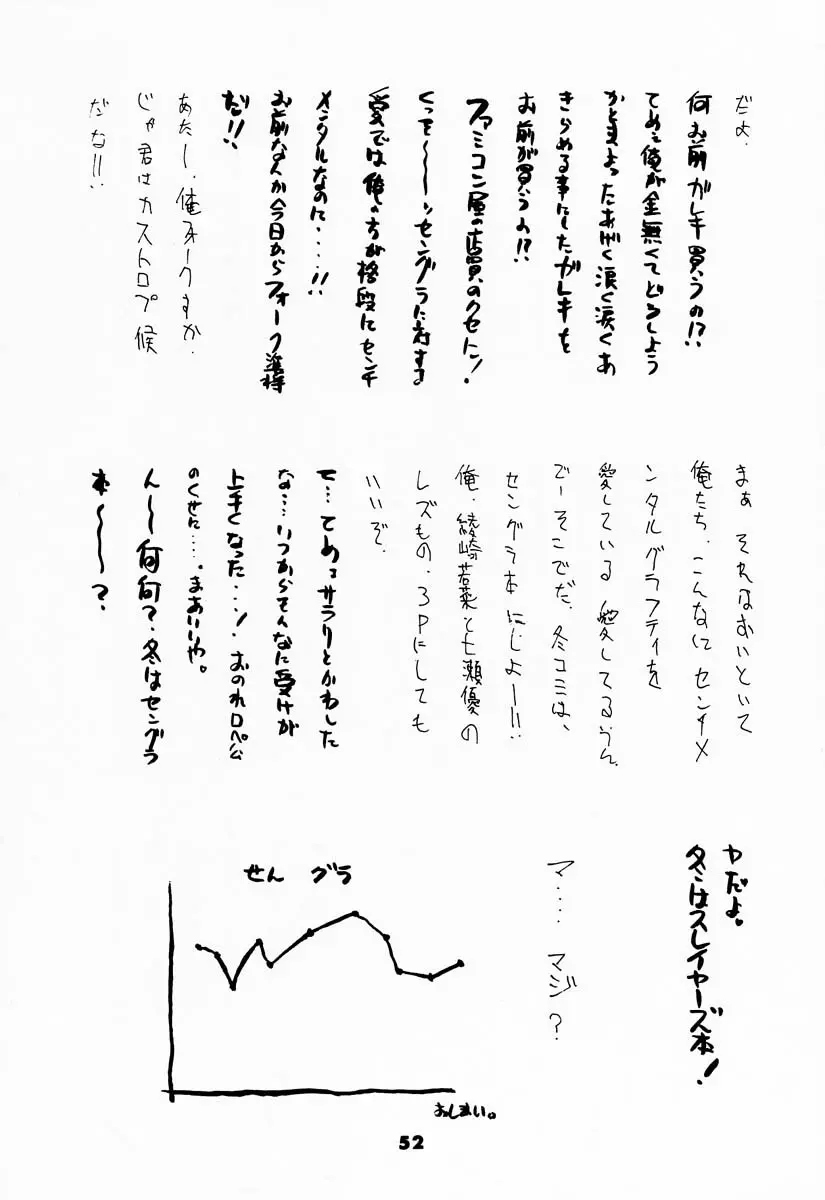 だよ.
何お前ガレキ買うの!?
てめェ俺が金無くてどうしよう
かとまよったあげく泣く泣くあ
きらめる事にしたガレキを
お前が買うの!?
ファミコン屋の店員のクセに!
くっそ〜〜〜ッセングラに対する
愛では俺の方が格段にセンチ
メンタルなのに・・・・!!
お前なんか今日からフォーク准将
だ!!
あたー、俺フォークすか.
じゃ君はカストロプ候
だな!!
まぁ それはおいといて
俺たち、こんなに センチメ
ンタルグラフティを
愛している 愛してるうん.
でーそこでだ、冬コミは、
セングラ本 にしよー!!
俺、綾崎若菜と七瀬優の
レズもの、3Pにしても
いいぞ.
て・・・てめェサラリとかわした
な・・・いつからそんなに受けが
上手くなった・・・! おのれロペ公
のくせに・・・。まあいいや。
ん〜何何?、冬はセングラ
本〜〜〜?.
ヤだよ。
冬はスレイヤーズ本!
マ・・・・ マジ?
せん グラ
おしまい。
52